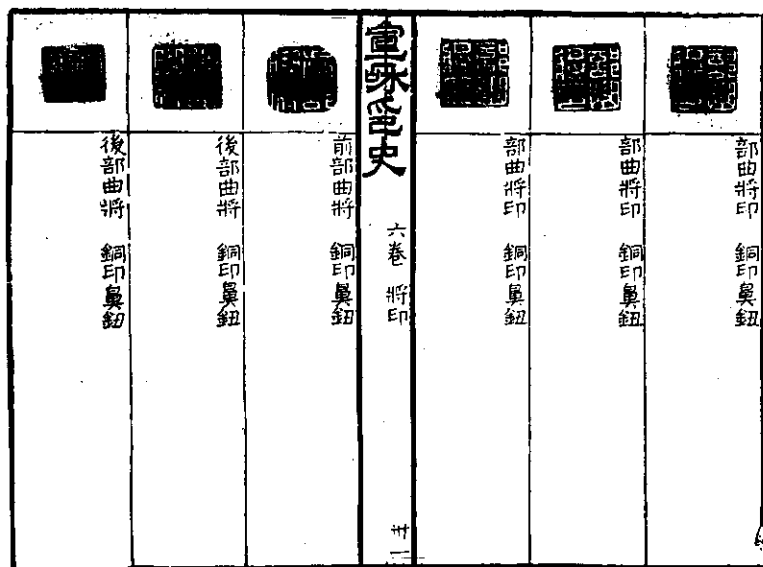 部曲將印 銅印鼻鈕
部曲將印 銅印鼻鈕
部曲將印 銅印鼻鈕
宣和印史 六卷 將印
前部曲將 銅印鼻鈕
後部曲將 銅印鼻鈕
後部曲將 銅印鼻鈕